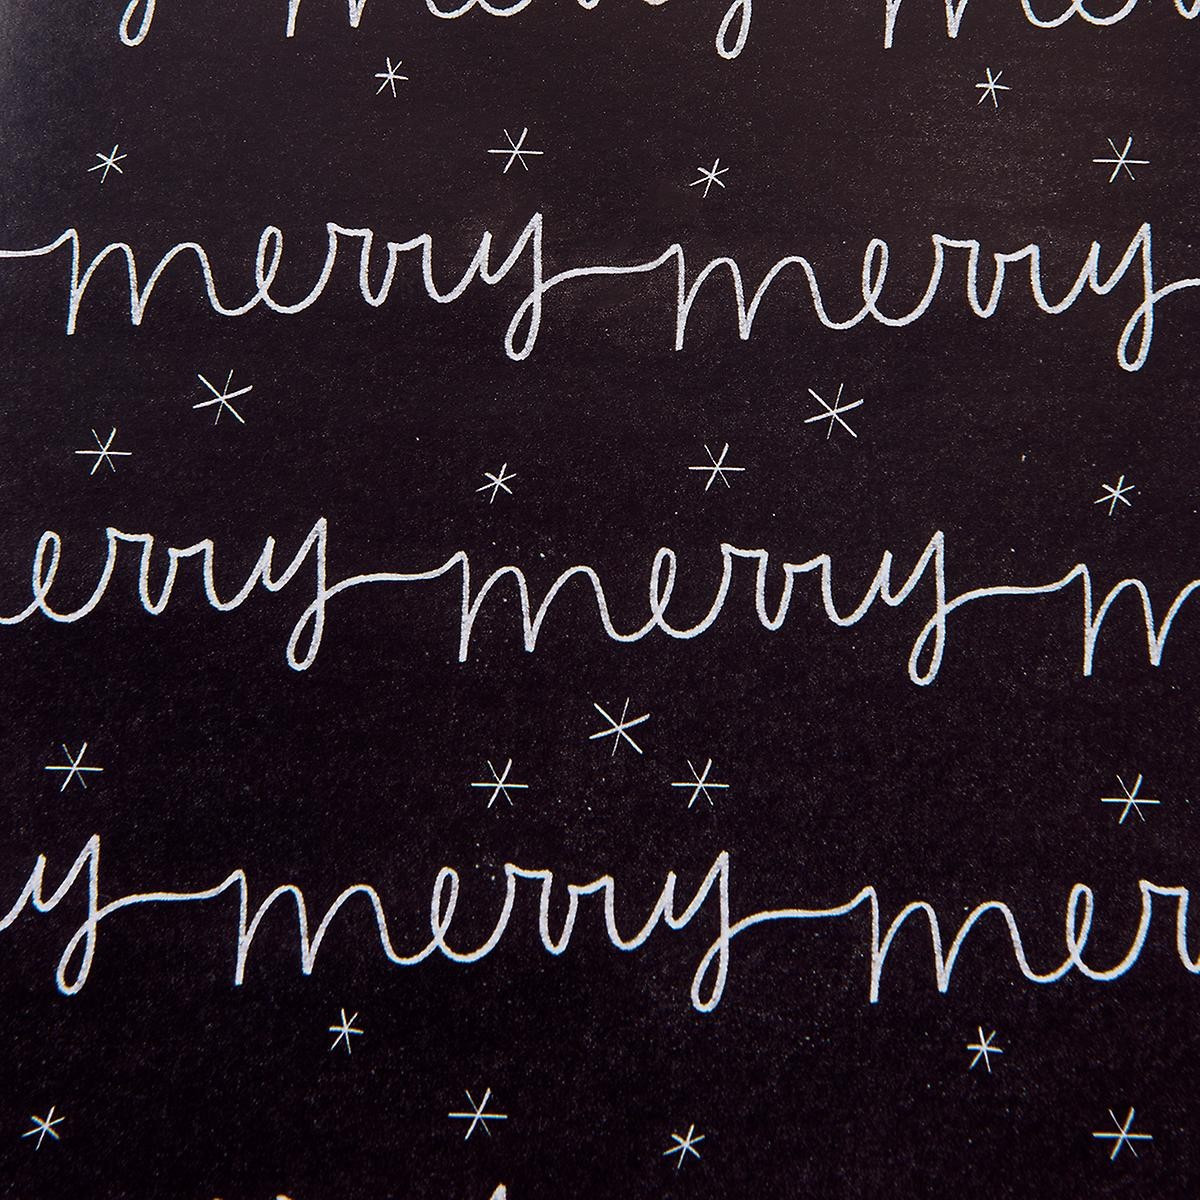 merry
merry merry
erry merry m
y merry mer